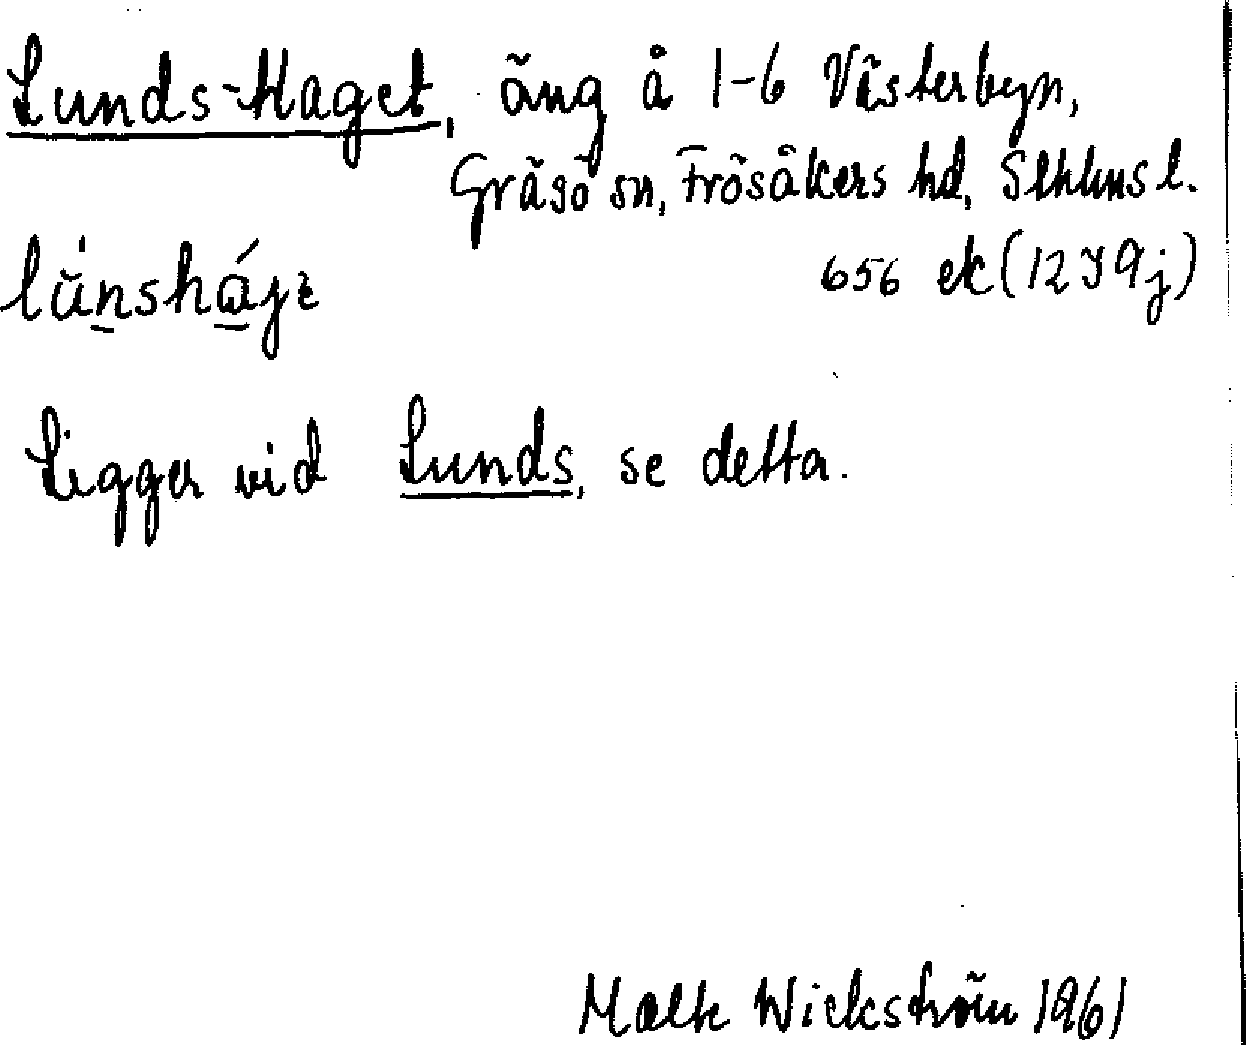 Lunds-Haget, äng å 1-6 Västerbyn,
Gräsö sn, Frösåkers hd, Sthlms l.
656 ek (12 I 9 j)
Ligger vid Lunds, se detta.
Malte Wickström 1961